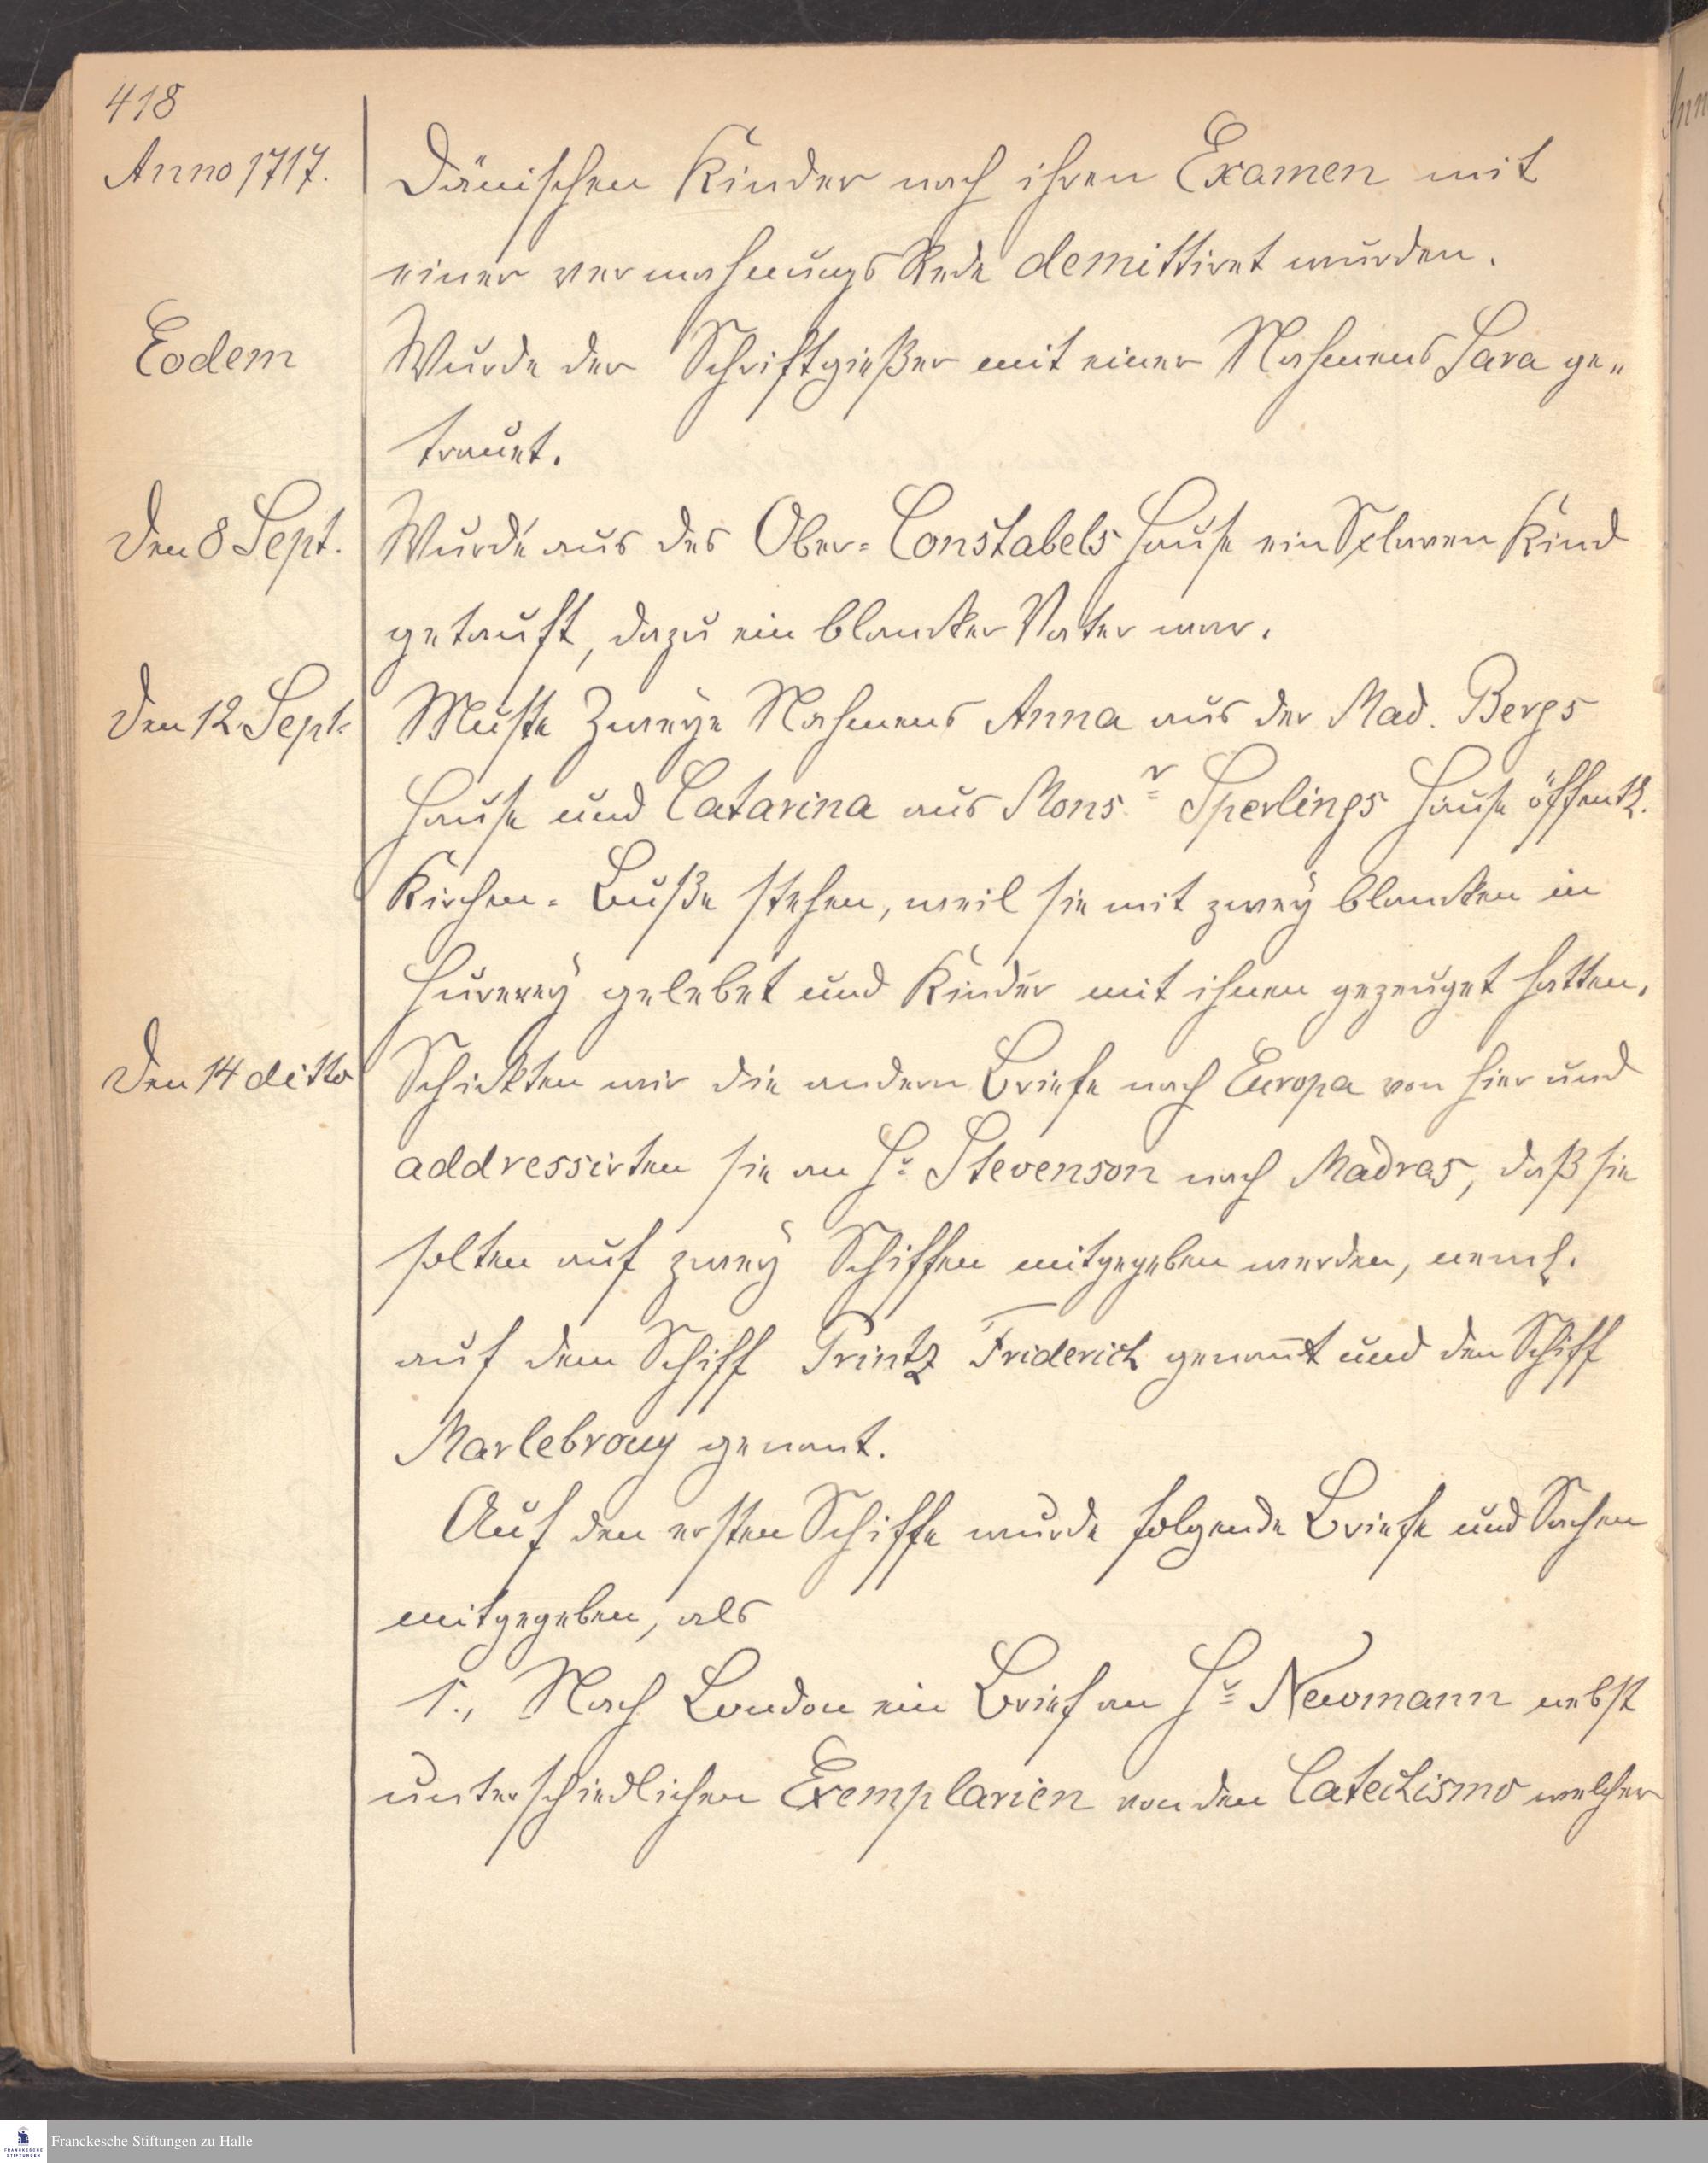 418
Anno 1717. Dänischen Kinder nach ihren Examen mit
einer vermahnungs Rede demittiret wurden.
Eodem Wurde der Schriftgießer mit einer Nahmens Sara ge„
trauet.
Den 8 Sept. Wurde aus des Ober-Constabels Hause ein Sclaven Kind
getauft, dazu ein blancker Vater war.
Den 12 Sept. Muste Zweye Nahmens Anna aus der Mad. Bergs
Hause und Catarina aus Monsr. Sperlings Hause öffentl.
Kirchen-Buße stehen, weil sie mit zwey blancken in
Hurerey gelebet und Kinder mit ihnen gezeuget hatten.
Den 14 ditto Schickten wir die andern Briefe nach Europa von hier und
addressirten sie an Hr. Stevenson nach Madras, daß sie
solten auf zwey Schiffen mitgegeben werden, neml.
auf dem Schiff Printz Friderich genan̄t und den Schiff
Marlebroug genant.
Auf den ersten Schiffe wurde folgende Briefe und Sachen
mitgegeben, als
1., Nach London ein Brief an Hr. Newmann nebst
unterschiedlichen Exemplarien von den Catechismo welcher
FRANCKESCHE STIFTUNGEN
Franckesche Stiftungen zu Halle